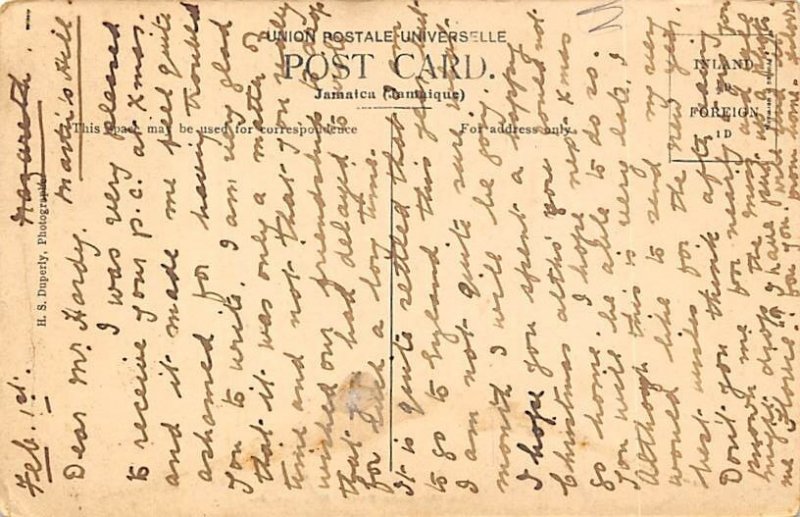 UNION POSTALE UNIVERSELLE
POST CARD.
Jamaica (Jamaique)
This space may be used for correspondence
For address only.
INLAND
FOREIGN
1D
H. S. Duperly, Photographer
Nazareth
Feb. 1st.
Martin's Hill.
Dear Mr. Hardy.
I was very pleased
to receive your p.c. at Xmas.
and it made me feel quite
ashamed for having troubled
You to write. I am very glad
that it was only a matter of
time and not that you really
wished our friendship to drop
that had delayed
for a long time.
It is quite settled that I am
to go to England this year but
I am not quite sure what
month I will be going.
I hope you spent a happy
Christmas altho' you could not
go home. I hope next Xmas
You will be able to do so.
Although this is very late, I
would like to send my very
best wishes for the New Year.
Don't you think after
known me for nearly you
might drop the and
me "I have
for you. from home.